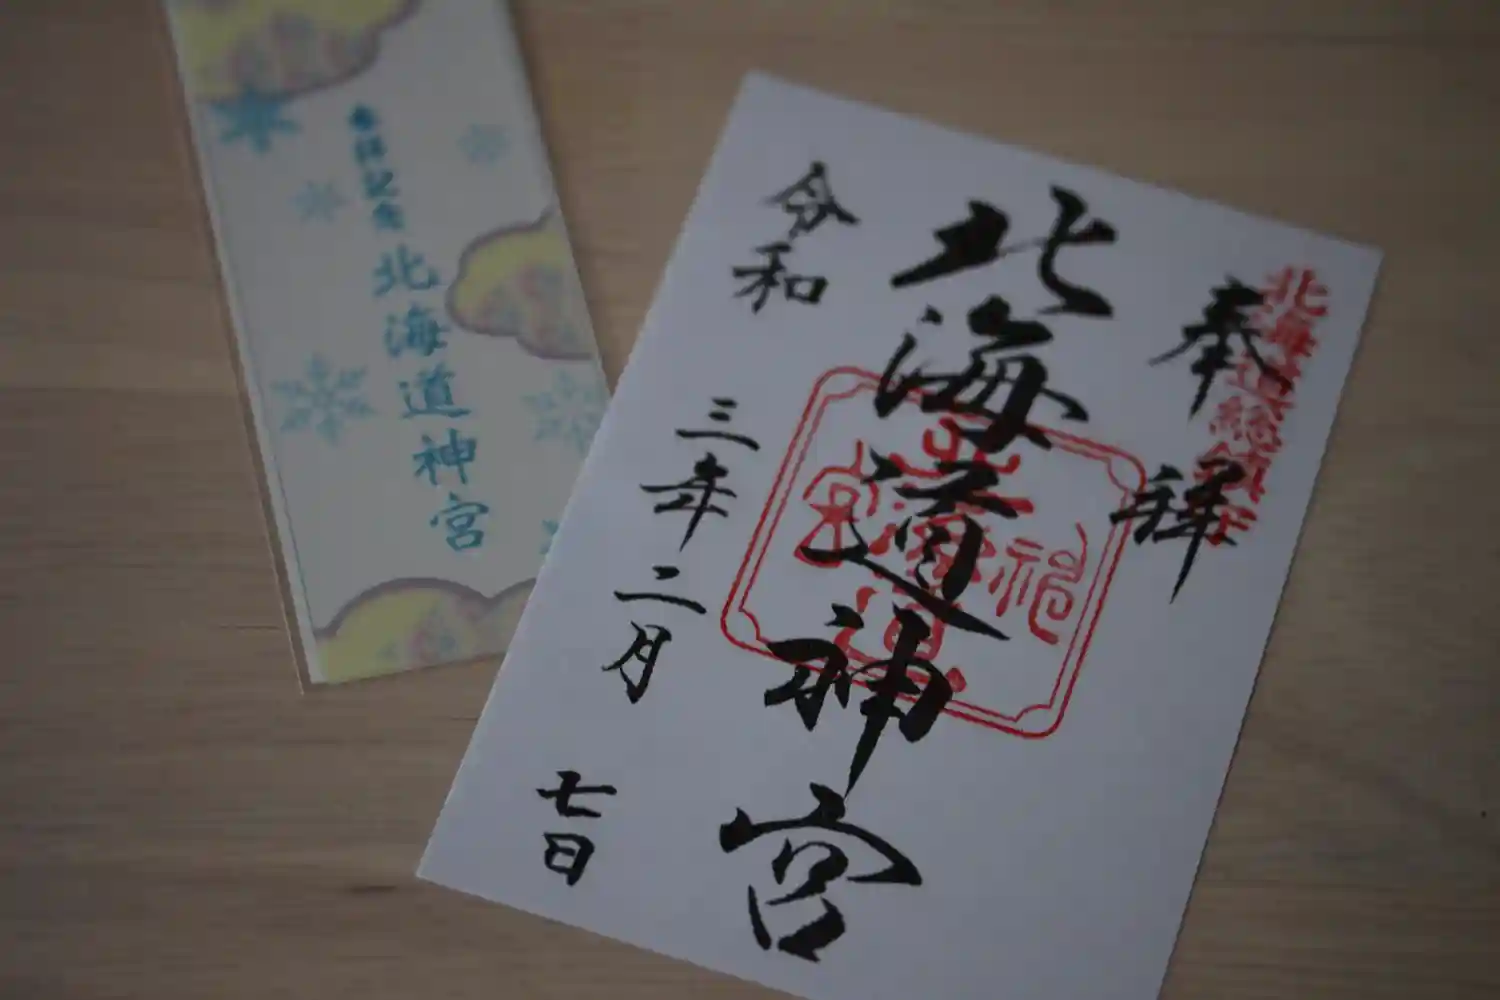 参拝記念
北海道神宮
北海道総鎮守
奉拝
北海道神宮
令和三年二月七日